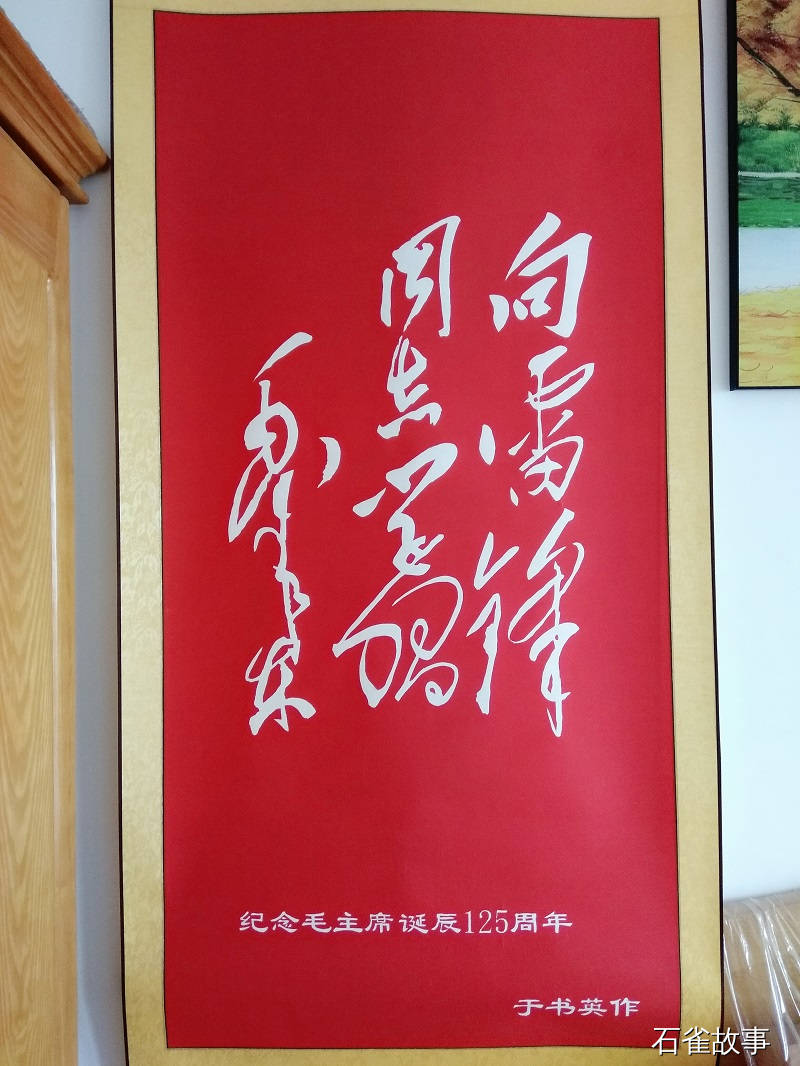 向雷锋
同志学习
毛泽东
纪念毛主席诞辰125周年
于书英作
石雀故事